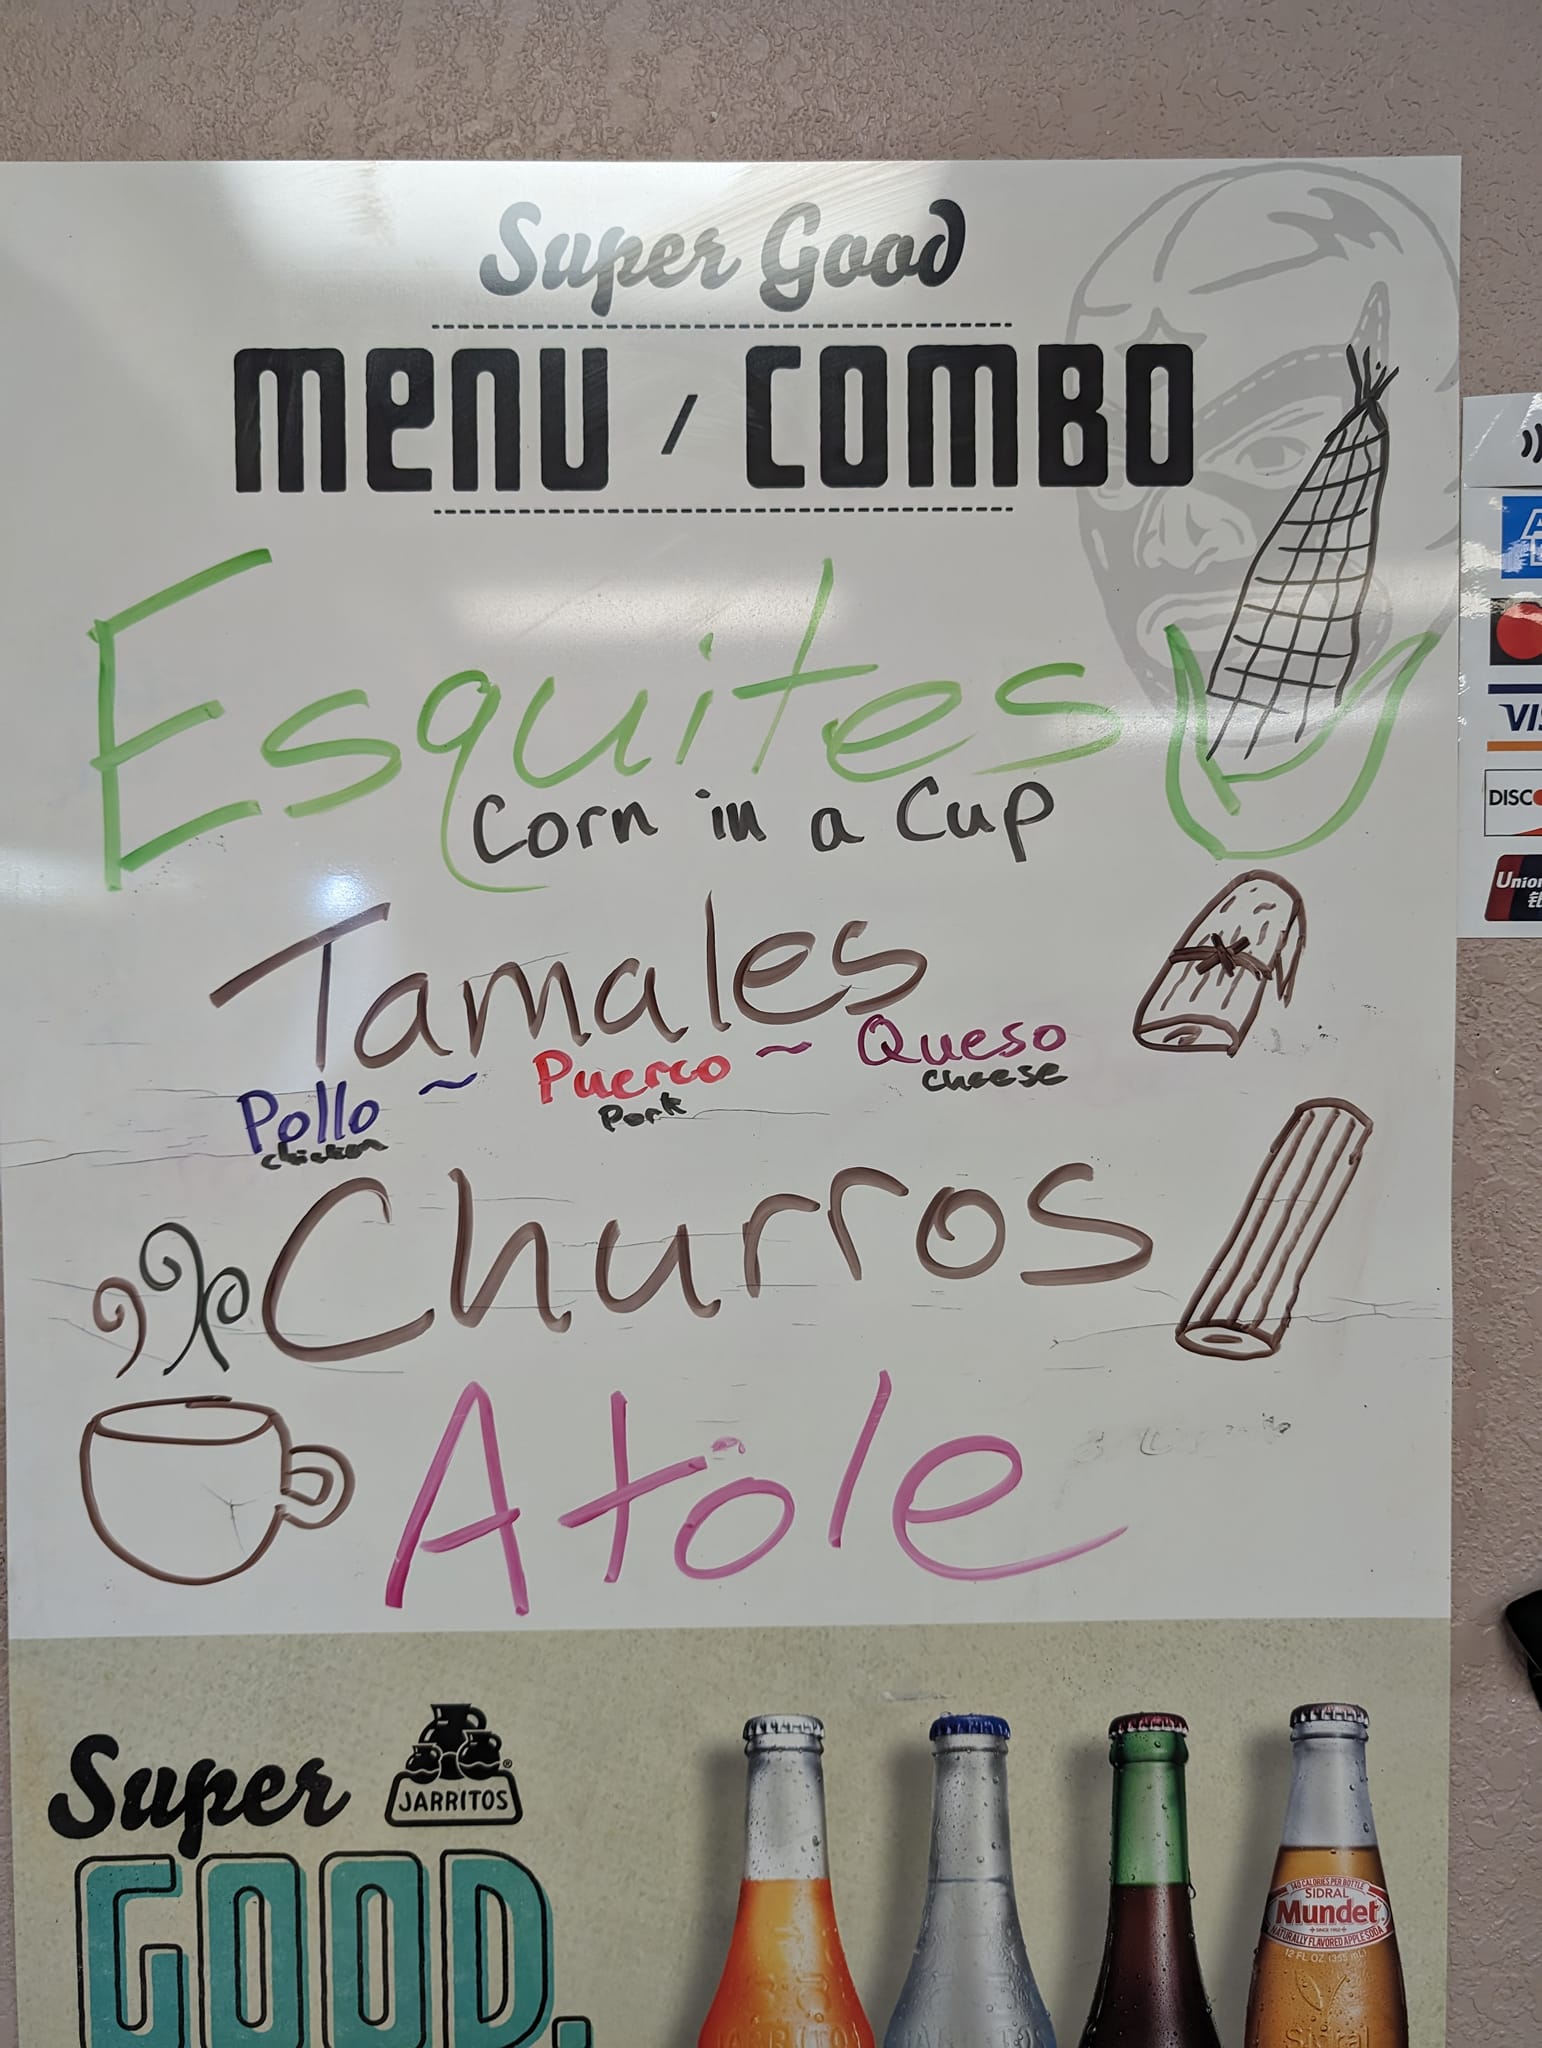 Super Good
MENU / COMBO
Esquites
Corn in a Cup
Tamales
Pollo ~ Puerco ~ Queso
chicken Pork cheese
Churros
Atole
Super JARRITOS®
GOOD.
140 CALORIES PER BOTTLE
SIDRAL
Mundet
SINCE 1902
NATURALLY FLAVORED APPLE SODA
12 FL OZ (355 mL)
JARRITOS
Sidral
VIS
DISC
Union